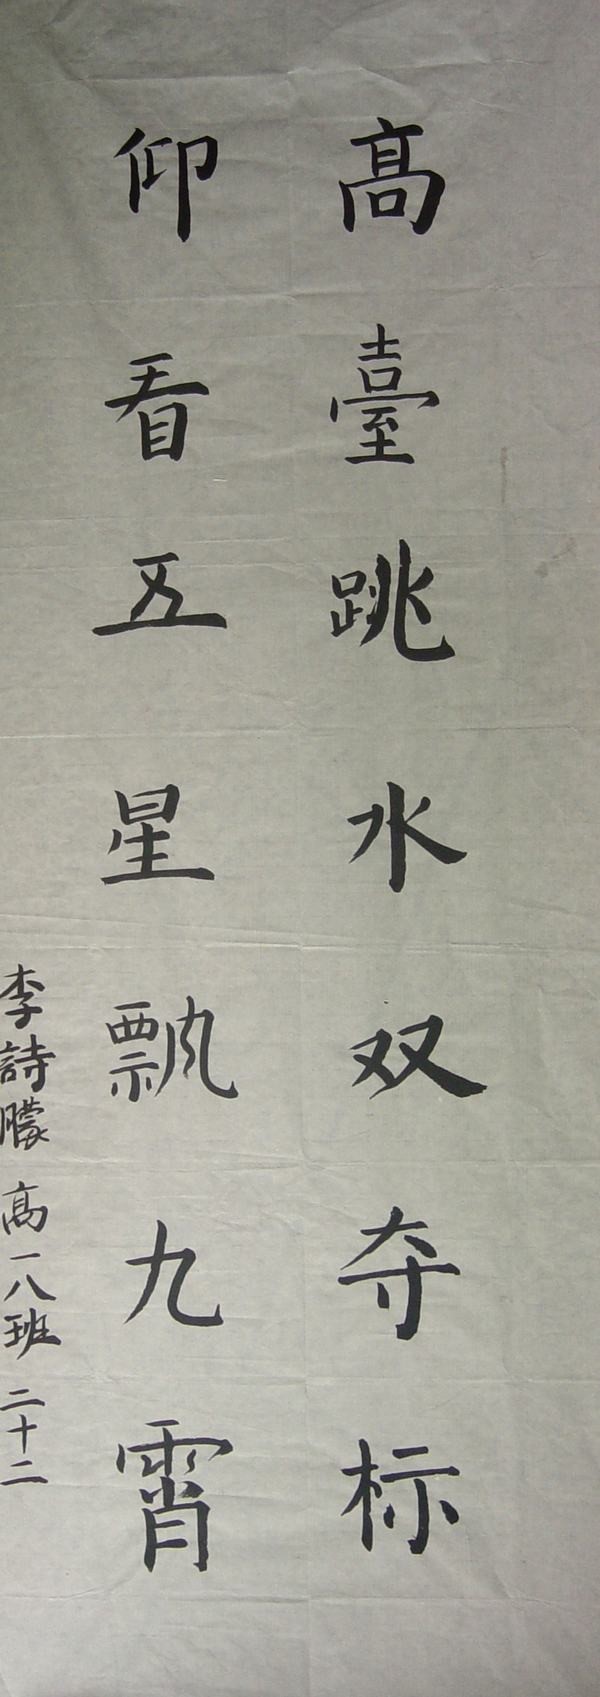 高臺跳水双夺标
仰看五星飘九霄
李詩朦 高一八班 二十二